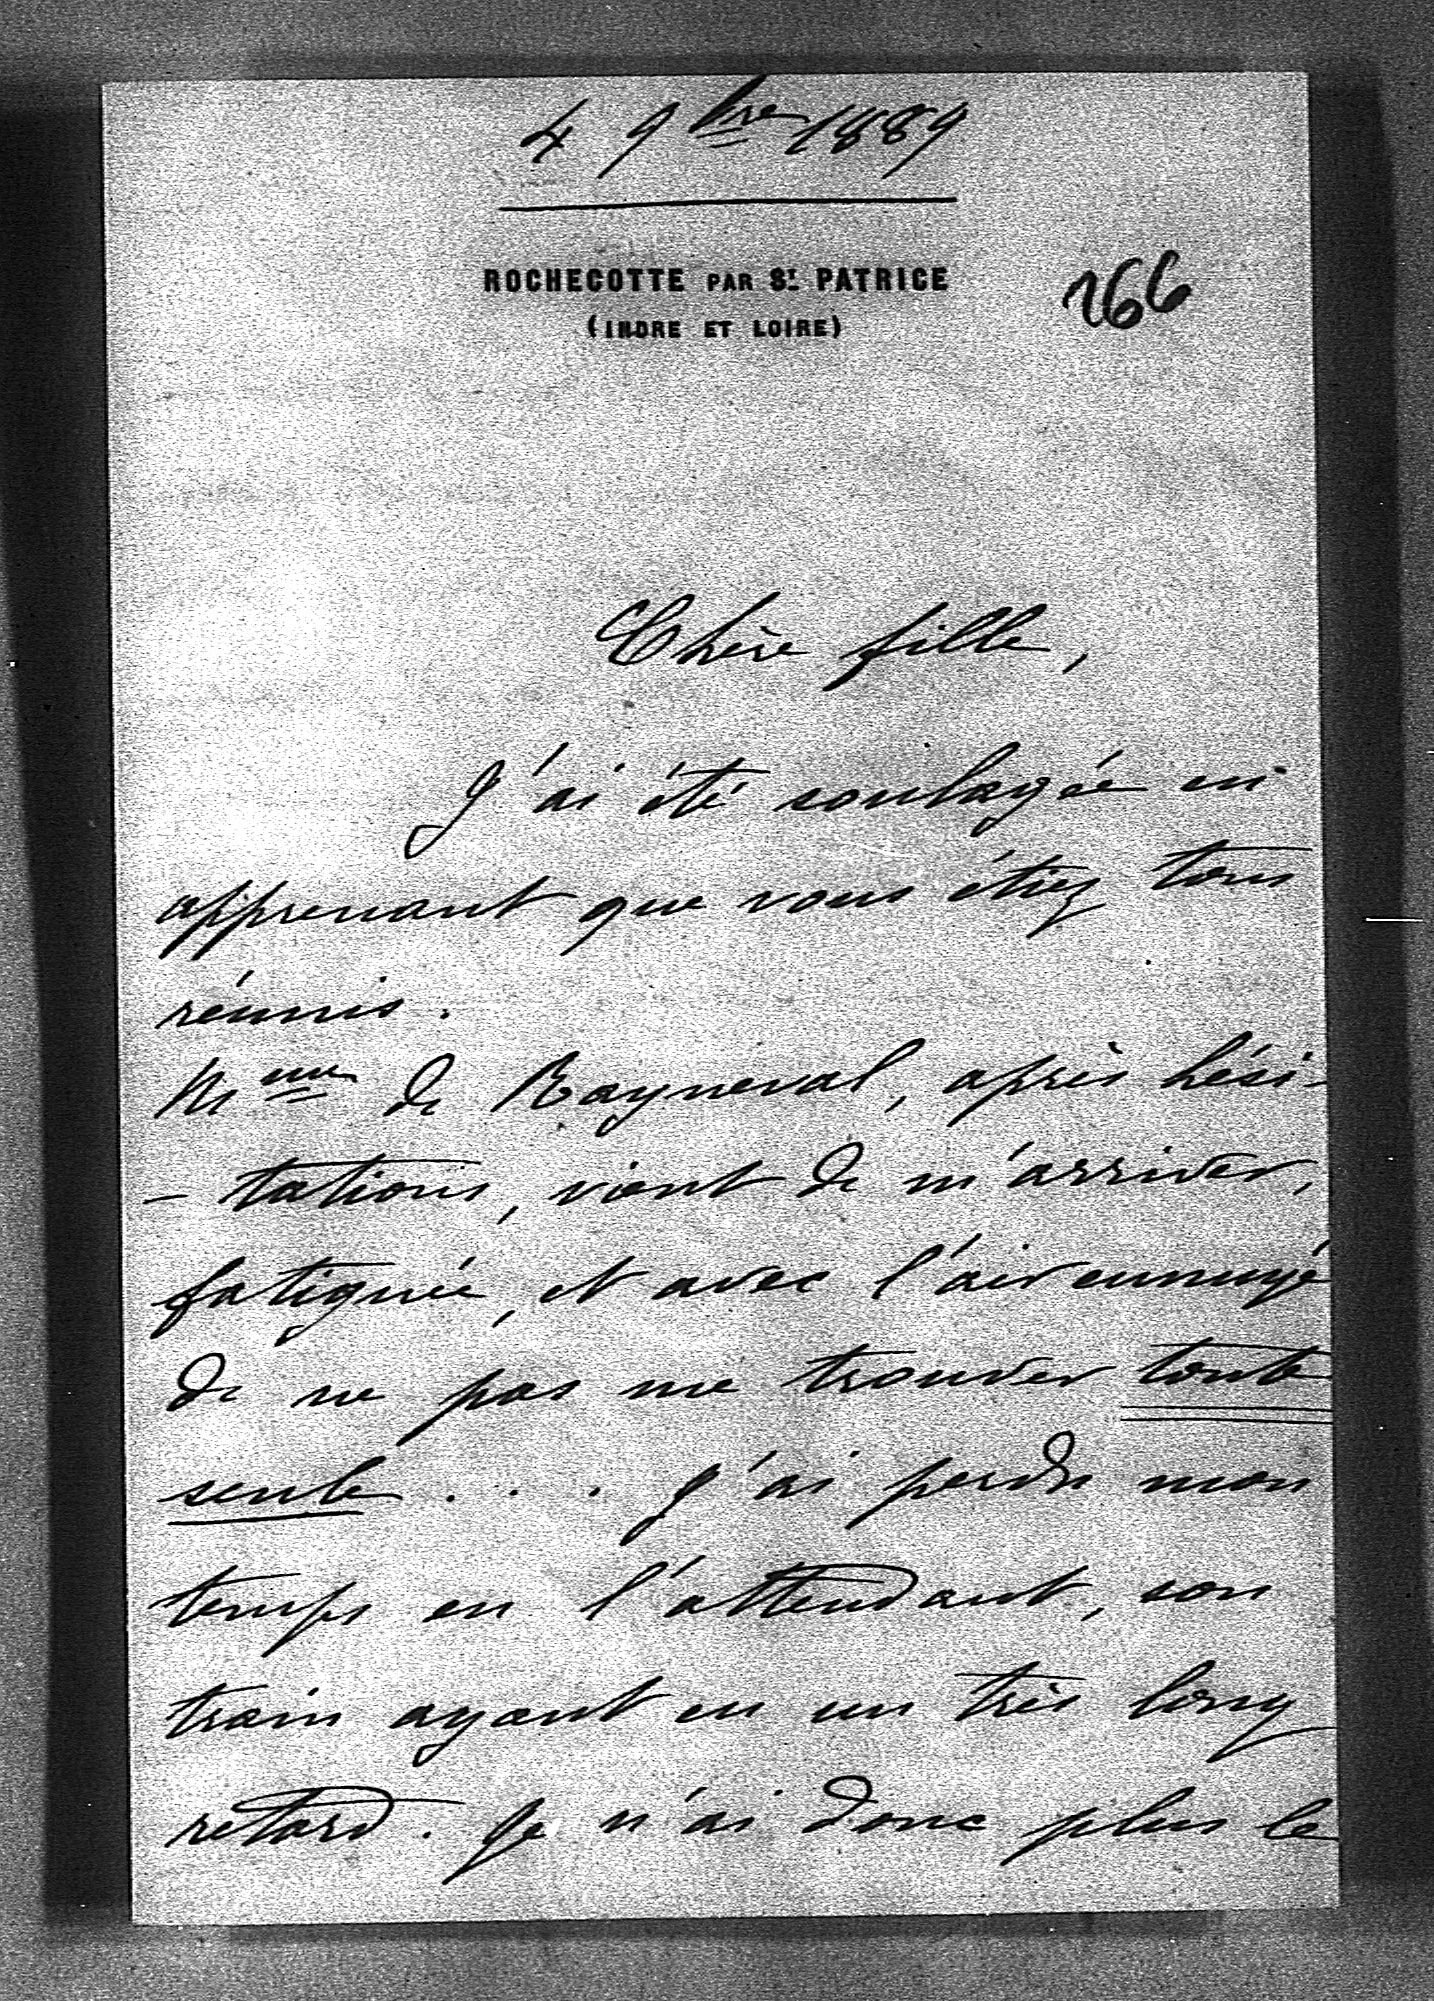 4 9bre 1889
ROCHECOTTE PAR ST. PATRICE
(INDRE ET LOIRE)
166
Chère fille,
J'ai été soulagée en
apprenant que vous étiez tous
réunis.
Mme de Rayneval, après hési-
-tations, vient de m'arriver,
fatiguée, et avec l'air ennuyé
de ne pas me trouver toute
seule . . . J'ai perdu mon
temps en l'attendant, son
train ayant eu un très long
retard. Je n'ai donc plus le